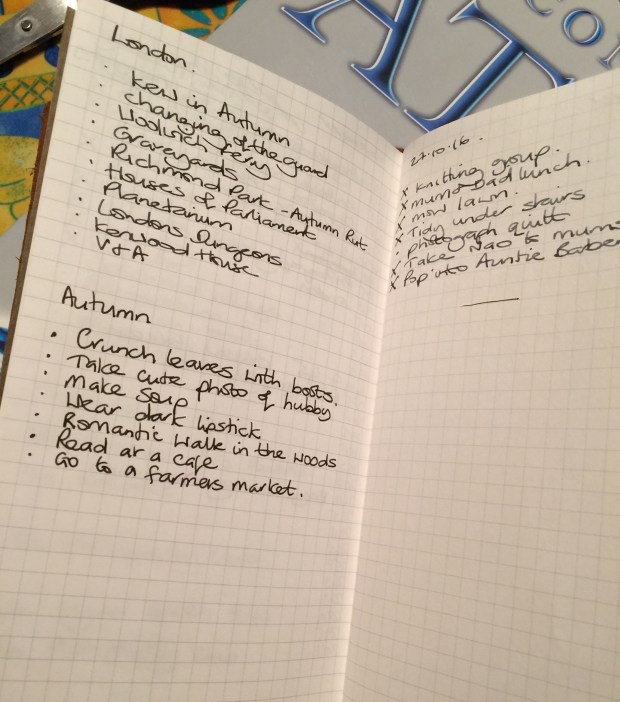 London.
· Kew in Autumn
· Changing of the guard
· Woolwich Ferry
· Graveyards
· Richmond Park - Autumn Rut
· Houses of Parliament
· Planetarium
· Londons Dungeons
· Kenwood House
· V+A
Autumn
· Crunch leaves with boots.
· Take cute photo of hubby
· Make soup
· Wear dark lipstick
· Romantic walk in the woods
· Read at a cafe
· Go to a farmers market.
27.10.16.
x Knitting group.
x mum+Dad lunch.
x mow lawn.
x Tidy under stairs
· photograph quilt
x Take Nao to mums
x Pop into Auntie Barber